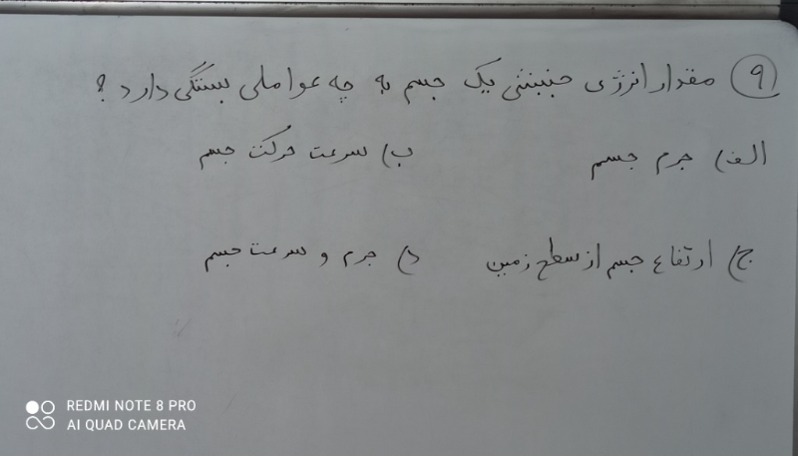 ۹) مقدار انرژی جنبشی یک جسم به چه عواملی بستگی دارد؟
الف) جرم جسم ب) سرعت حرکت جسم
ج) ارتفاع جسم از سطح زمین د) جرم و سرعت جسم
REDMI NOTE 8 PRO
AI QUAD CAMERA